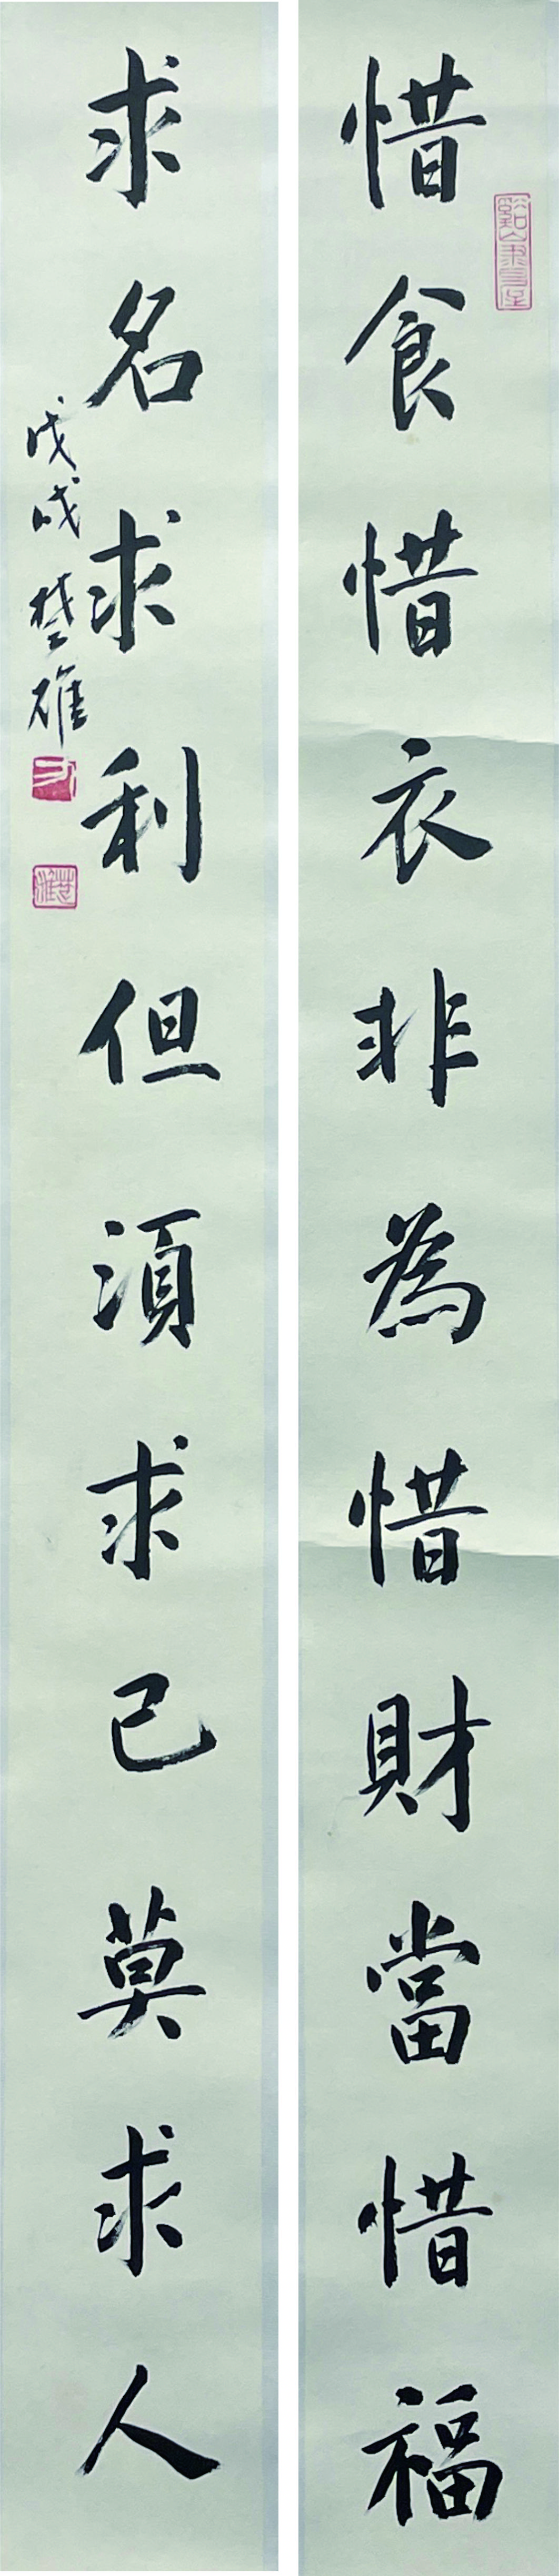 惜食惜衣非為惜財當惜福
求名求利但須求己莫求人
戊戌楚雄